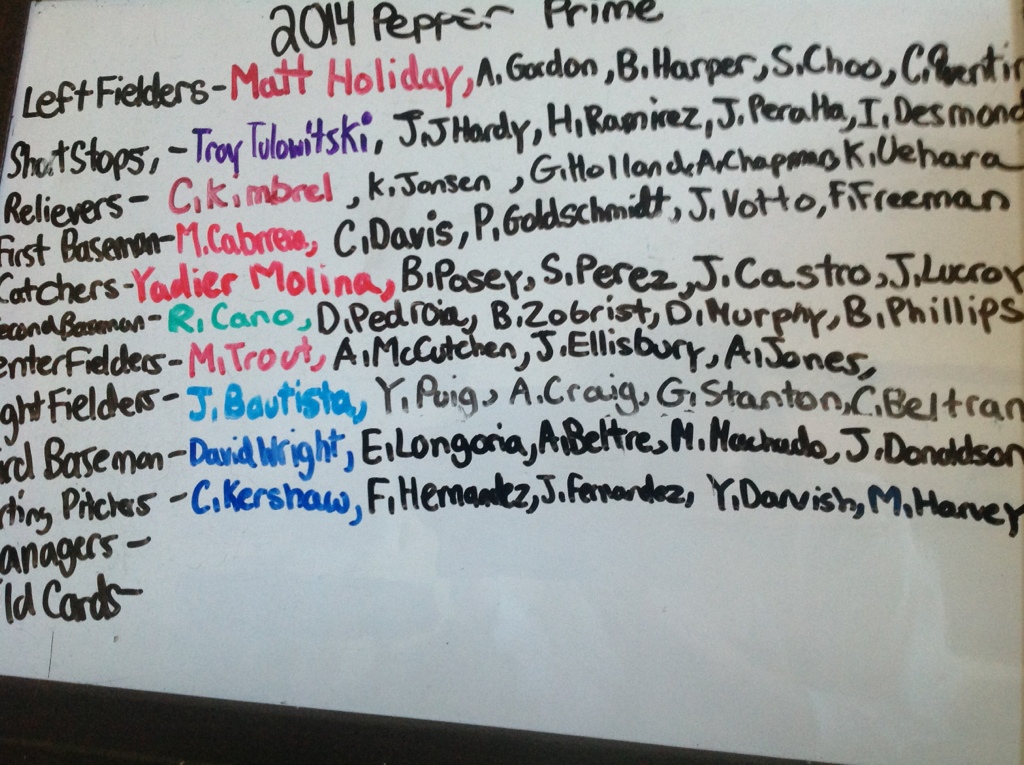 2014 Pepper Prime
Left Fielders - Matt Holiday, A. Gordon, B. Harper, S. Choo, C. Quentin
Short Stops, - Troy Tulowitski, J.J Hardy, H. Ramirez, J. Peralta, I. Desmond
Relievers - C. Kimbrel, K. Jansen, G. Holland, A. Chapman, K. Uehara
First Baseman - M. Cabrera, C. Davis, P. Goldschmidt, J. Votto, F. Freeman
Catchers - Yadier Molina, B. Posey, S. Perez, J. Castro, J. Lucroy
econd Baseman - R. Cano, D. Pedroia, B. Zobrist, D. Murphy, B. Phillips
enter Fielders - M. Trout, A. McCutchen, J. Ellisbury, A. Jones,
ght Fielders - J. Bautista, Y. Puig, A. Craig, G. Stanton, C. Beltran
ird Baseman - David Wright, E. Longoria, A. Beltre, M. Machado, J. Donaldson
rting Pitchers - C. Kershaw, F. Hernandez, J. Fernandez, Y. Darvish, M. Harvey
anagers -
ld Cards -